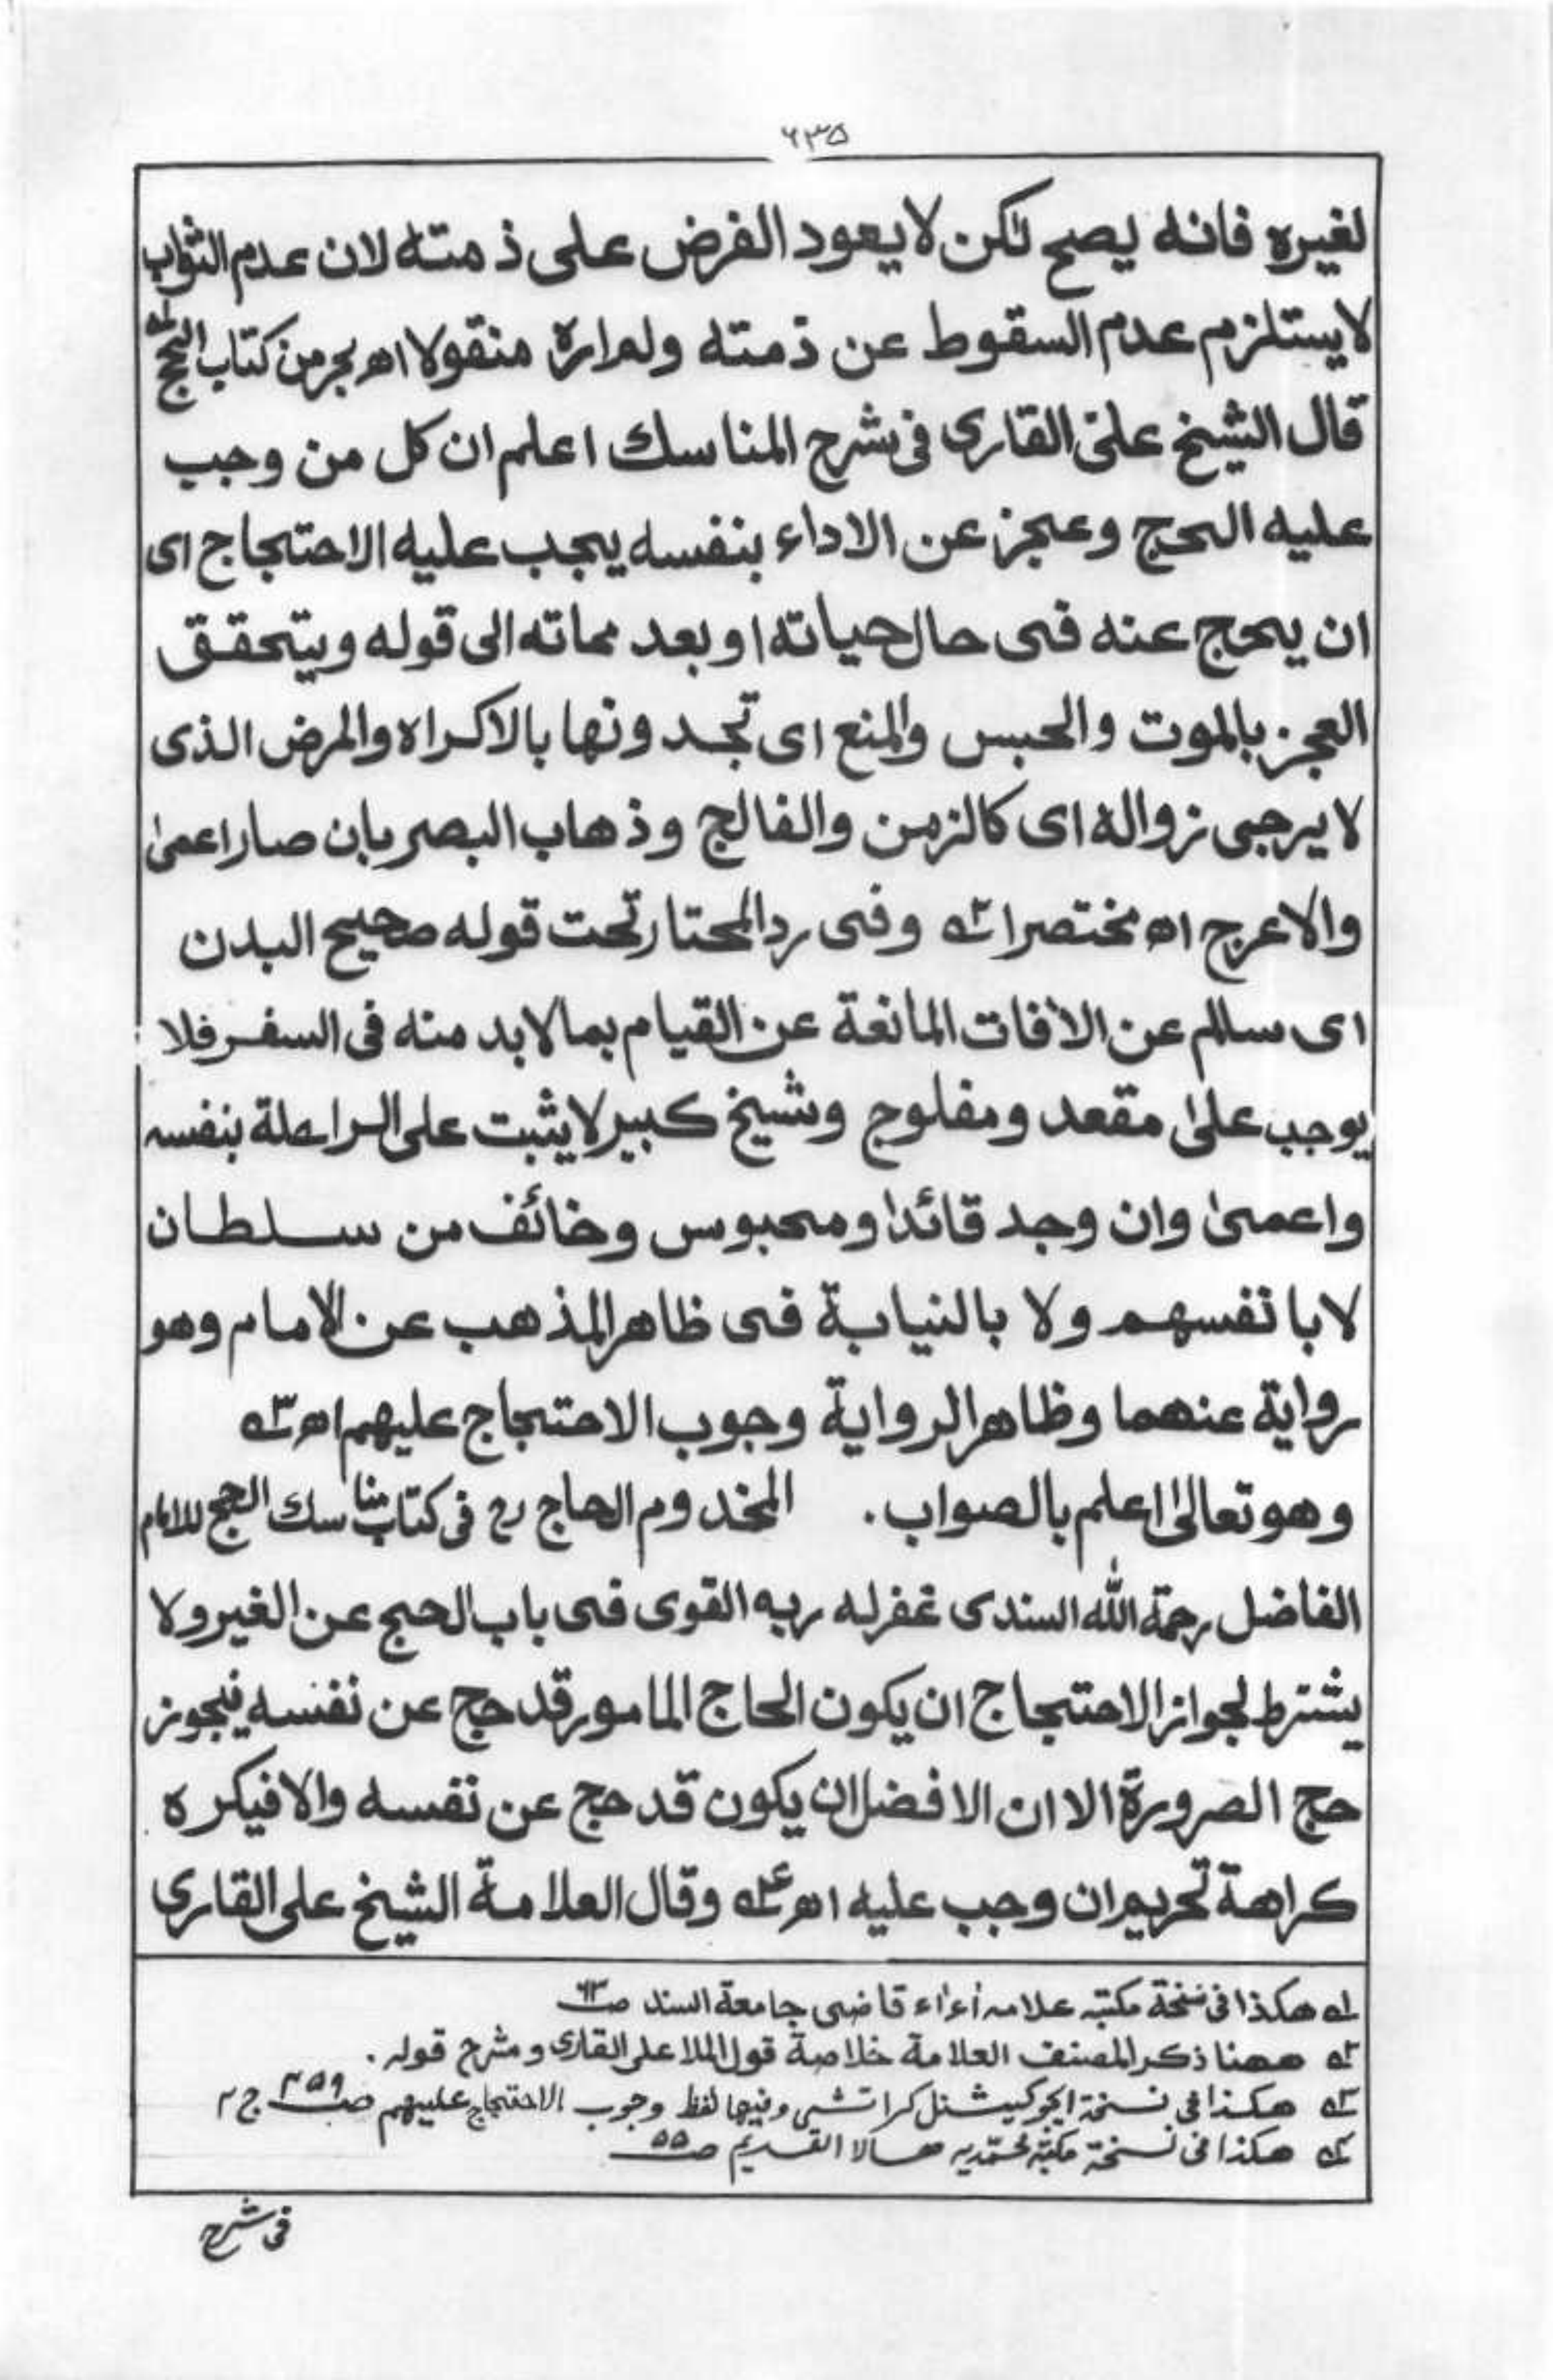 ٦٣٥
لغيره فانه يصح لكن لا يعود الفرض على ذمته لان عدم الثواب
لا يستلزم عدم السقوط عن ذمته ولم اره منقولا اھ بحر من كتاب الحج لہ
قال الشيخ علی القاری فی شرح المناسك اعلم ان كل من وجب
عليه الحج وعجز عن الاداء بنفسه يجب عليه الاحتجاج ای
ان يحج عنه فی حال حياته او بعد مماته الی قوله ويتحقق
العجز بالموت والحبس والمنع ای تجدونها بالاكراه والمرض الذی
لا يرجی زواله ای كالزمن والفالج وذهاب البصر بان صار اعمیٰ
والاعرج اھ مختصرا ٢ہ وفی رد المحتار تحت قوله صحيح البدن
ای سالم عن الآفات المانعة عن القيام بما لا بد منه فی السفر فلا
يوجب علیٰ مقعد ومفلوج وشيخ كبير لا يثبت علی الراحلة بنفسه
واعمیٰ وان وجد قائدا ومحبوس وخائف من سلطان
لا بانفسهم ولا بالنيابة فی ظاهر المذهب عن الامام وهو
رواية عنهما وظاهر الرواية وجوب الاحتجاج عليهم اھ ٣ہ
وهو تعالیٰ اعلم بالصواب. المخدوم الحاج رح فی كتاب مناسك الحج للامام
الفاضل رحمة الله السندی غفر له ربه القوی فی باب الحج عن الغير ولا
يشترط لجواز الاحتجاج ان يكون الحاج المامور قد حج عن نفسه فيجوز
حج الصرورة الا ان الافضل ان يكون قد حج عن نفسه والا فيكره
كراهة تحريم ان وجب عليه اھ ٤ہ وقال العلامة الشيخ علی القاری
لہ هكذا فی نسخة مكتبہ علامہ آء اء قاضی جامعة السند صـ٦٣
٢ہ ههنا ذكر المصنف العلامة خلاصة قول الملا علی القاری ومشرح قوله.
٣ہ هكذا فی نسخة ايجوكيشنل كراتشی وفيها لفظ وجوب الاحتجاج عليهم صـ٤٥٩ ج ٢
٤ہ هكذا فی نسخة مكتبة محمّديه هالا القديم صـ٥٥
فی شرح